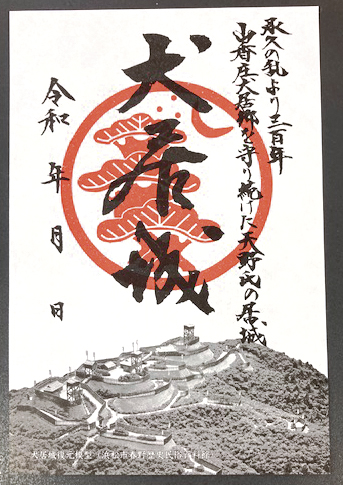 承久の乱より三百年
山香庄犬居郷を守り続けた天野氏の居城
犬居城
令和 年 月 日
犬居城復元模型（浜松市春野歴史民俗資料館）